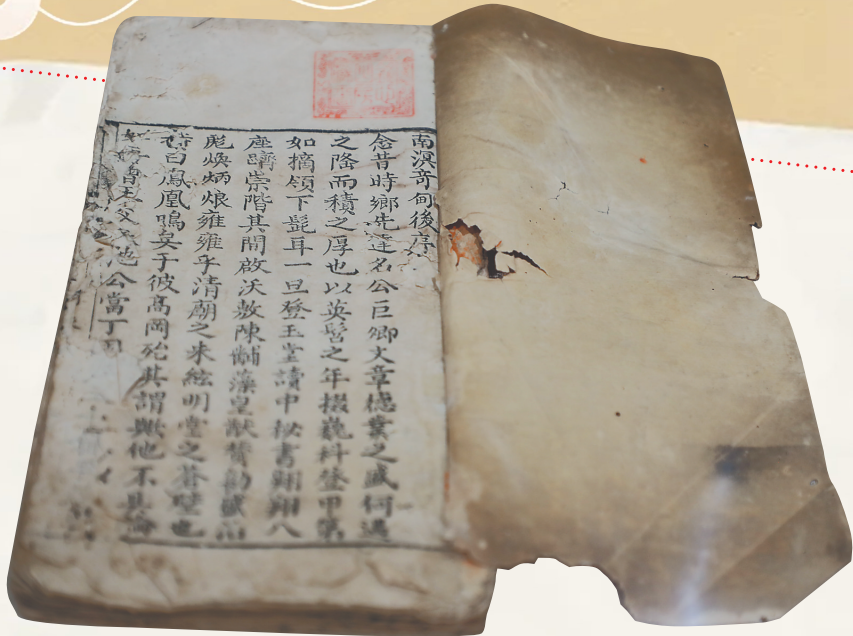 南溟奇甸後序
念昔時鄉先達名公巨卿文章德業之盛何遇
之降而積之厚也以英髫之年掇巍科登甲第
如摘頷下髭耳一旦登玉堂讀中秘書翱翔八
座躋崇階其開啟沃敷陳黼藻皇猷贊勷盛治
彪煥炳烺雍雍乎清廟之朱絃明堂之蒼璧也
詩曰鳳凰鳴矣于彼高岡殆其謂與他不具論
公當丁